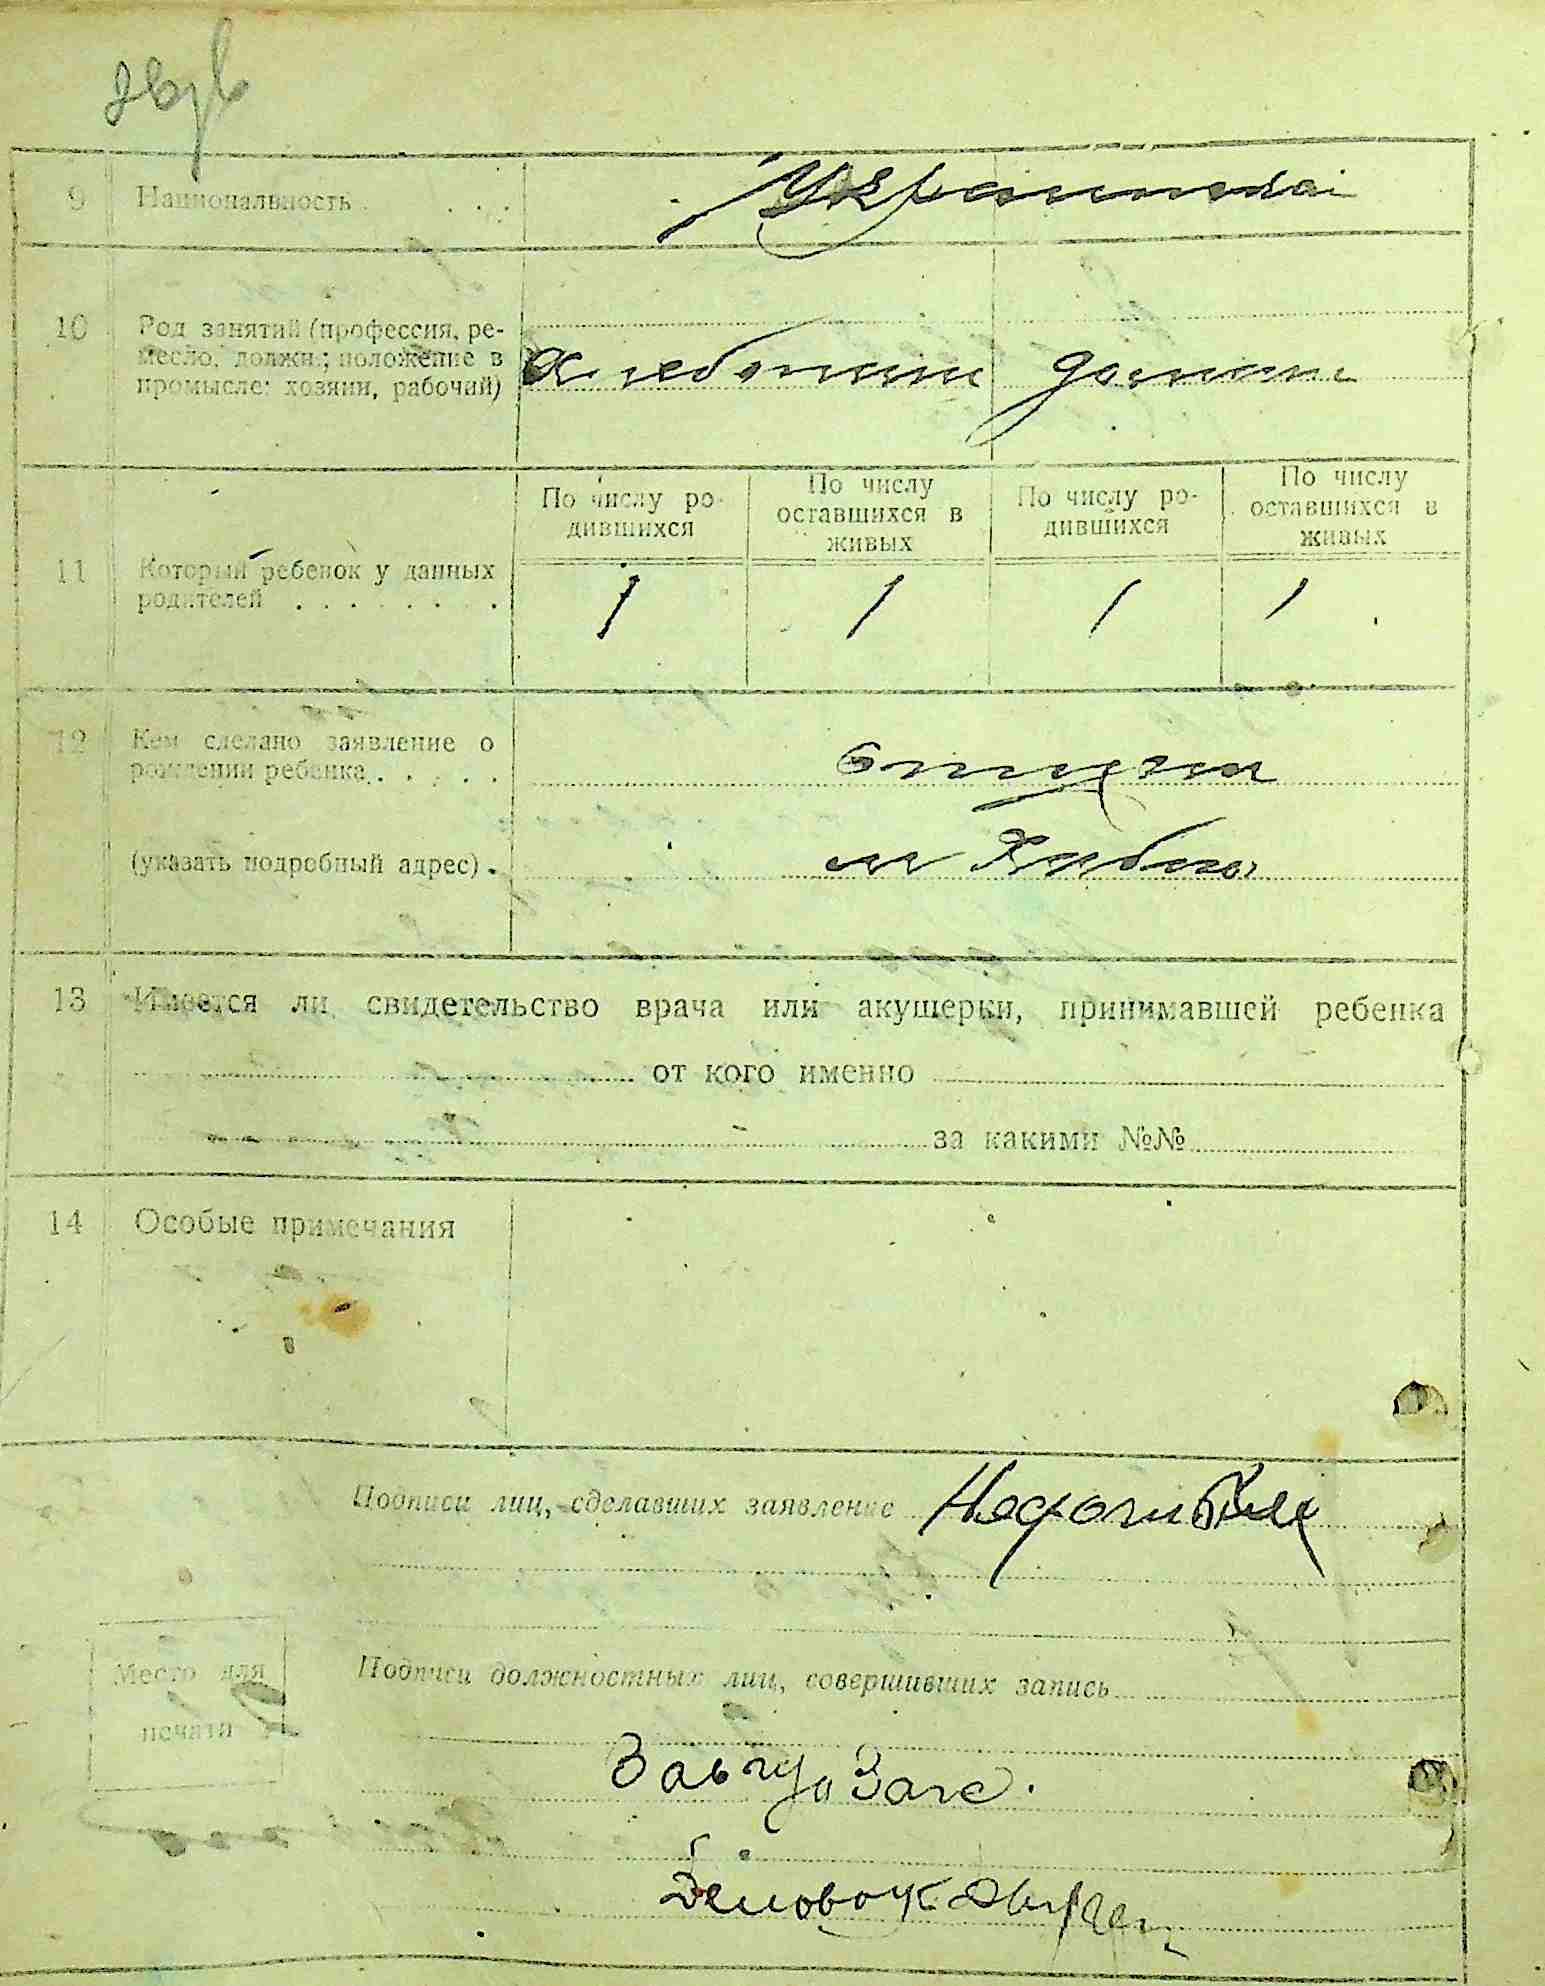 9 Национальность . . . .
10 Род занятий (профессия, ре-
месло, должн.; положение в
промысле: хозяин, рабочий)
По числу ро-
дившихся
По числу
оставшихся в
живых
По числу ро-
дившихся
По числу
оставшихся в
живых
11 Который ребенок у данных
родителей . . . . . . . .
1 1 1 1
12 Кем сделано заявление о
рождении ребенка . . . . .
отцем
(указать подробный адрес) .
13 Имеется ли свидетельство врача или акушерки, принимавшей ребенка
от кого именно
за какими №№
14 Особые примечания
Подписи лиц, сделавших заявление
Место для
печати
Подписи должностных лиц, совершивших запись
Загс.